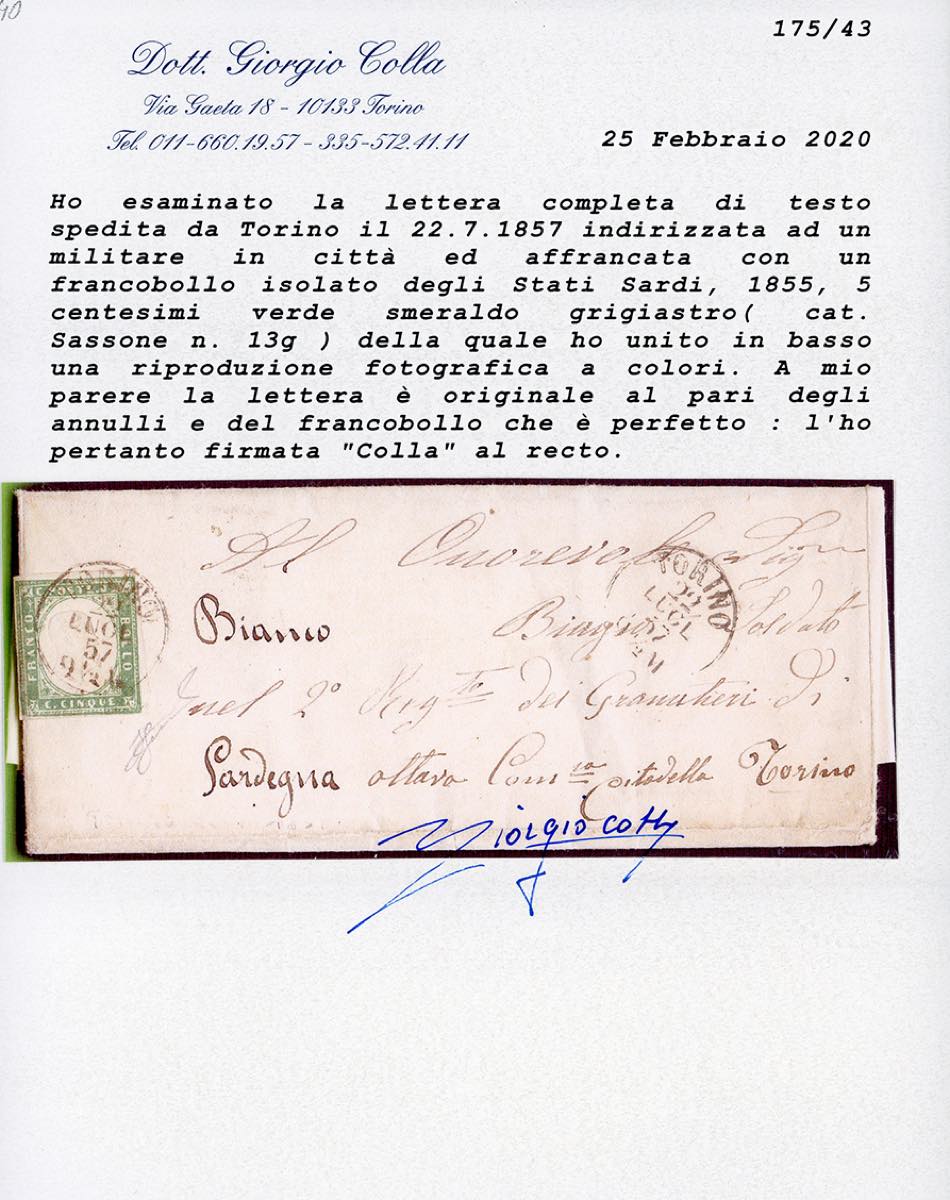 40
175/43
Dott. Giorgio Colla
Via Gaeta 18 - 10133 Torino
Tel. 011-660.19.57 - 335-572.41.11
25 Febbraio 2020
Ho esaminato la lettera completa di testo
spedita da Torino il 22.7.1857 indirizzata ad un
militare in città ed affrancata con un
francobollo isolato degli Stati Sardi, 1855, 5
centesimi verde smeraldo grigiastro( cat.
Sassone n. 13g ) della quale ho unito in basso
una riproduzione fotografica a colori. A mio
parere la lettera è originale al pari degli
annulli e del francobollo che è perfetto : l'ho
pertanto firmata "Colla" al recto.
Al Onorevole Sigr
Bianco Biagio Soldato
nel 2° Regto dei Granatieri di
Sardegna ottava Comia Citadella Torino
TORINO
22
LUGL
57
LUG
57
FRANCO
BOLLO
C. CINQUE.
Giorgio Colla